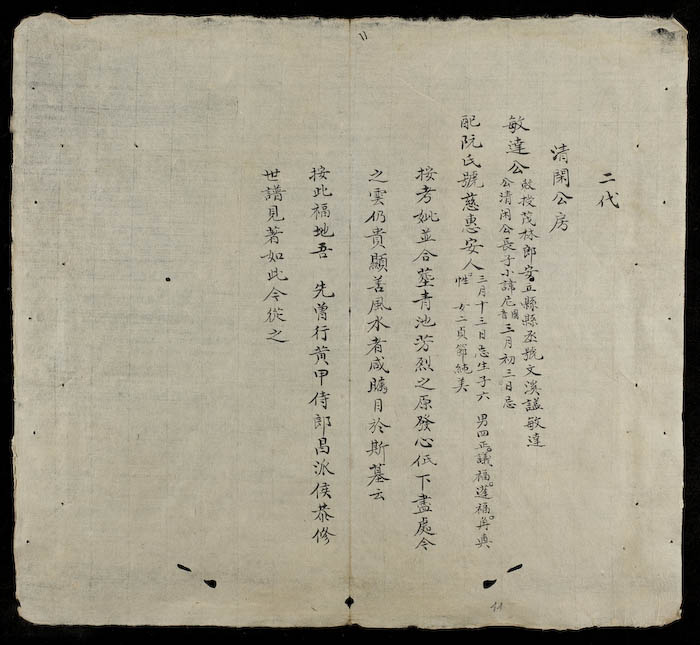 二代
清閑公房
敏達公
敕授茂林郎安丘縣縣丞號文溪謚敏達
公清閑公長子小諱尼音三月初三日忌
配阮氏號慈惠安人
三月十三日忌生子六 男四正議福蓮福再典
性 女二貞節純美
按考妣並合墓青池芳烈之原發心低下盡處今
之雲仍貴顯善風水者咸矚目於斯墓云
按此福地吾 先曾行黃甲侍郎昌派侯恭修
世譜見著如此今從之
11